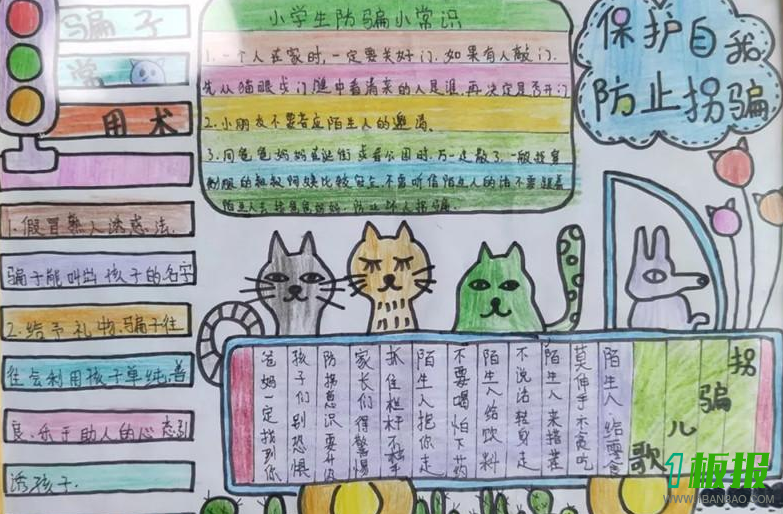 骗子
常
用术
1.假冒熟人诱惑法.
骗子能叫出孩子的名字
2.给予礼物.骗子往
往会利用孩子单纯善
良.乐于助人的心态引
诱孩子.
小学生防骗小常识
1.一个人在家时,一定要关好门.如果有人敲门.
先从猫眼或门缝中看清来的人是谁.再决定是否开门
2.小朋友不要答应陌生人的邀请。
3.同爸爸妈妈在逛街或者公园时.万一走散了.一般穿
制服的叔叔阿姨比较安全.不要听信陌生人的话不要跟着
陌生人去找爸爸妈妈.防止坏人拐骗.
保护自我
防止拐骗
拐骗儿歌
陌生人给零食
莫伸手不贪吃
陌生人来搭茬
不说话转身走
陌生人给饮料
不要喝怕下药
陌生人抱你走
抓住栏杆不松手
家长们得警惕
防拐意识要升级
孩子们别恐惧
爸妈一定找到你
1板报
WWW.1BANBAO.COM